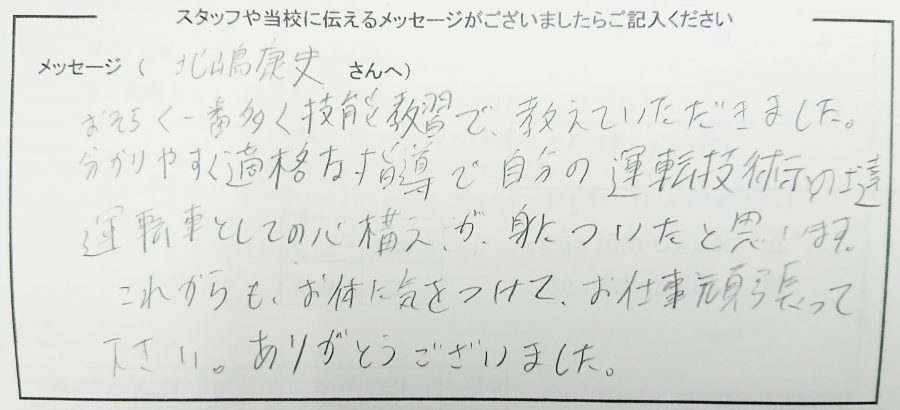 スタッフや当校に伝えるメッセージがございましたらご記入ください
メッセージ( 北嶋康史 さんへ)
おそらく一番多く技能教習で、教えていただきました。
分かりやすく適格な指導で自分の運転技術の上達
運転車としての心構え、が、身についたと思います。
これからも、お体に気をつけて、お仕事頑張って
下さい。ありがとうございました。